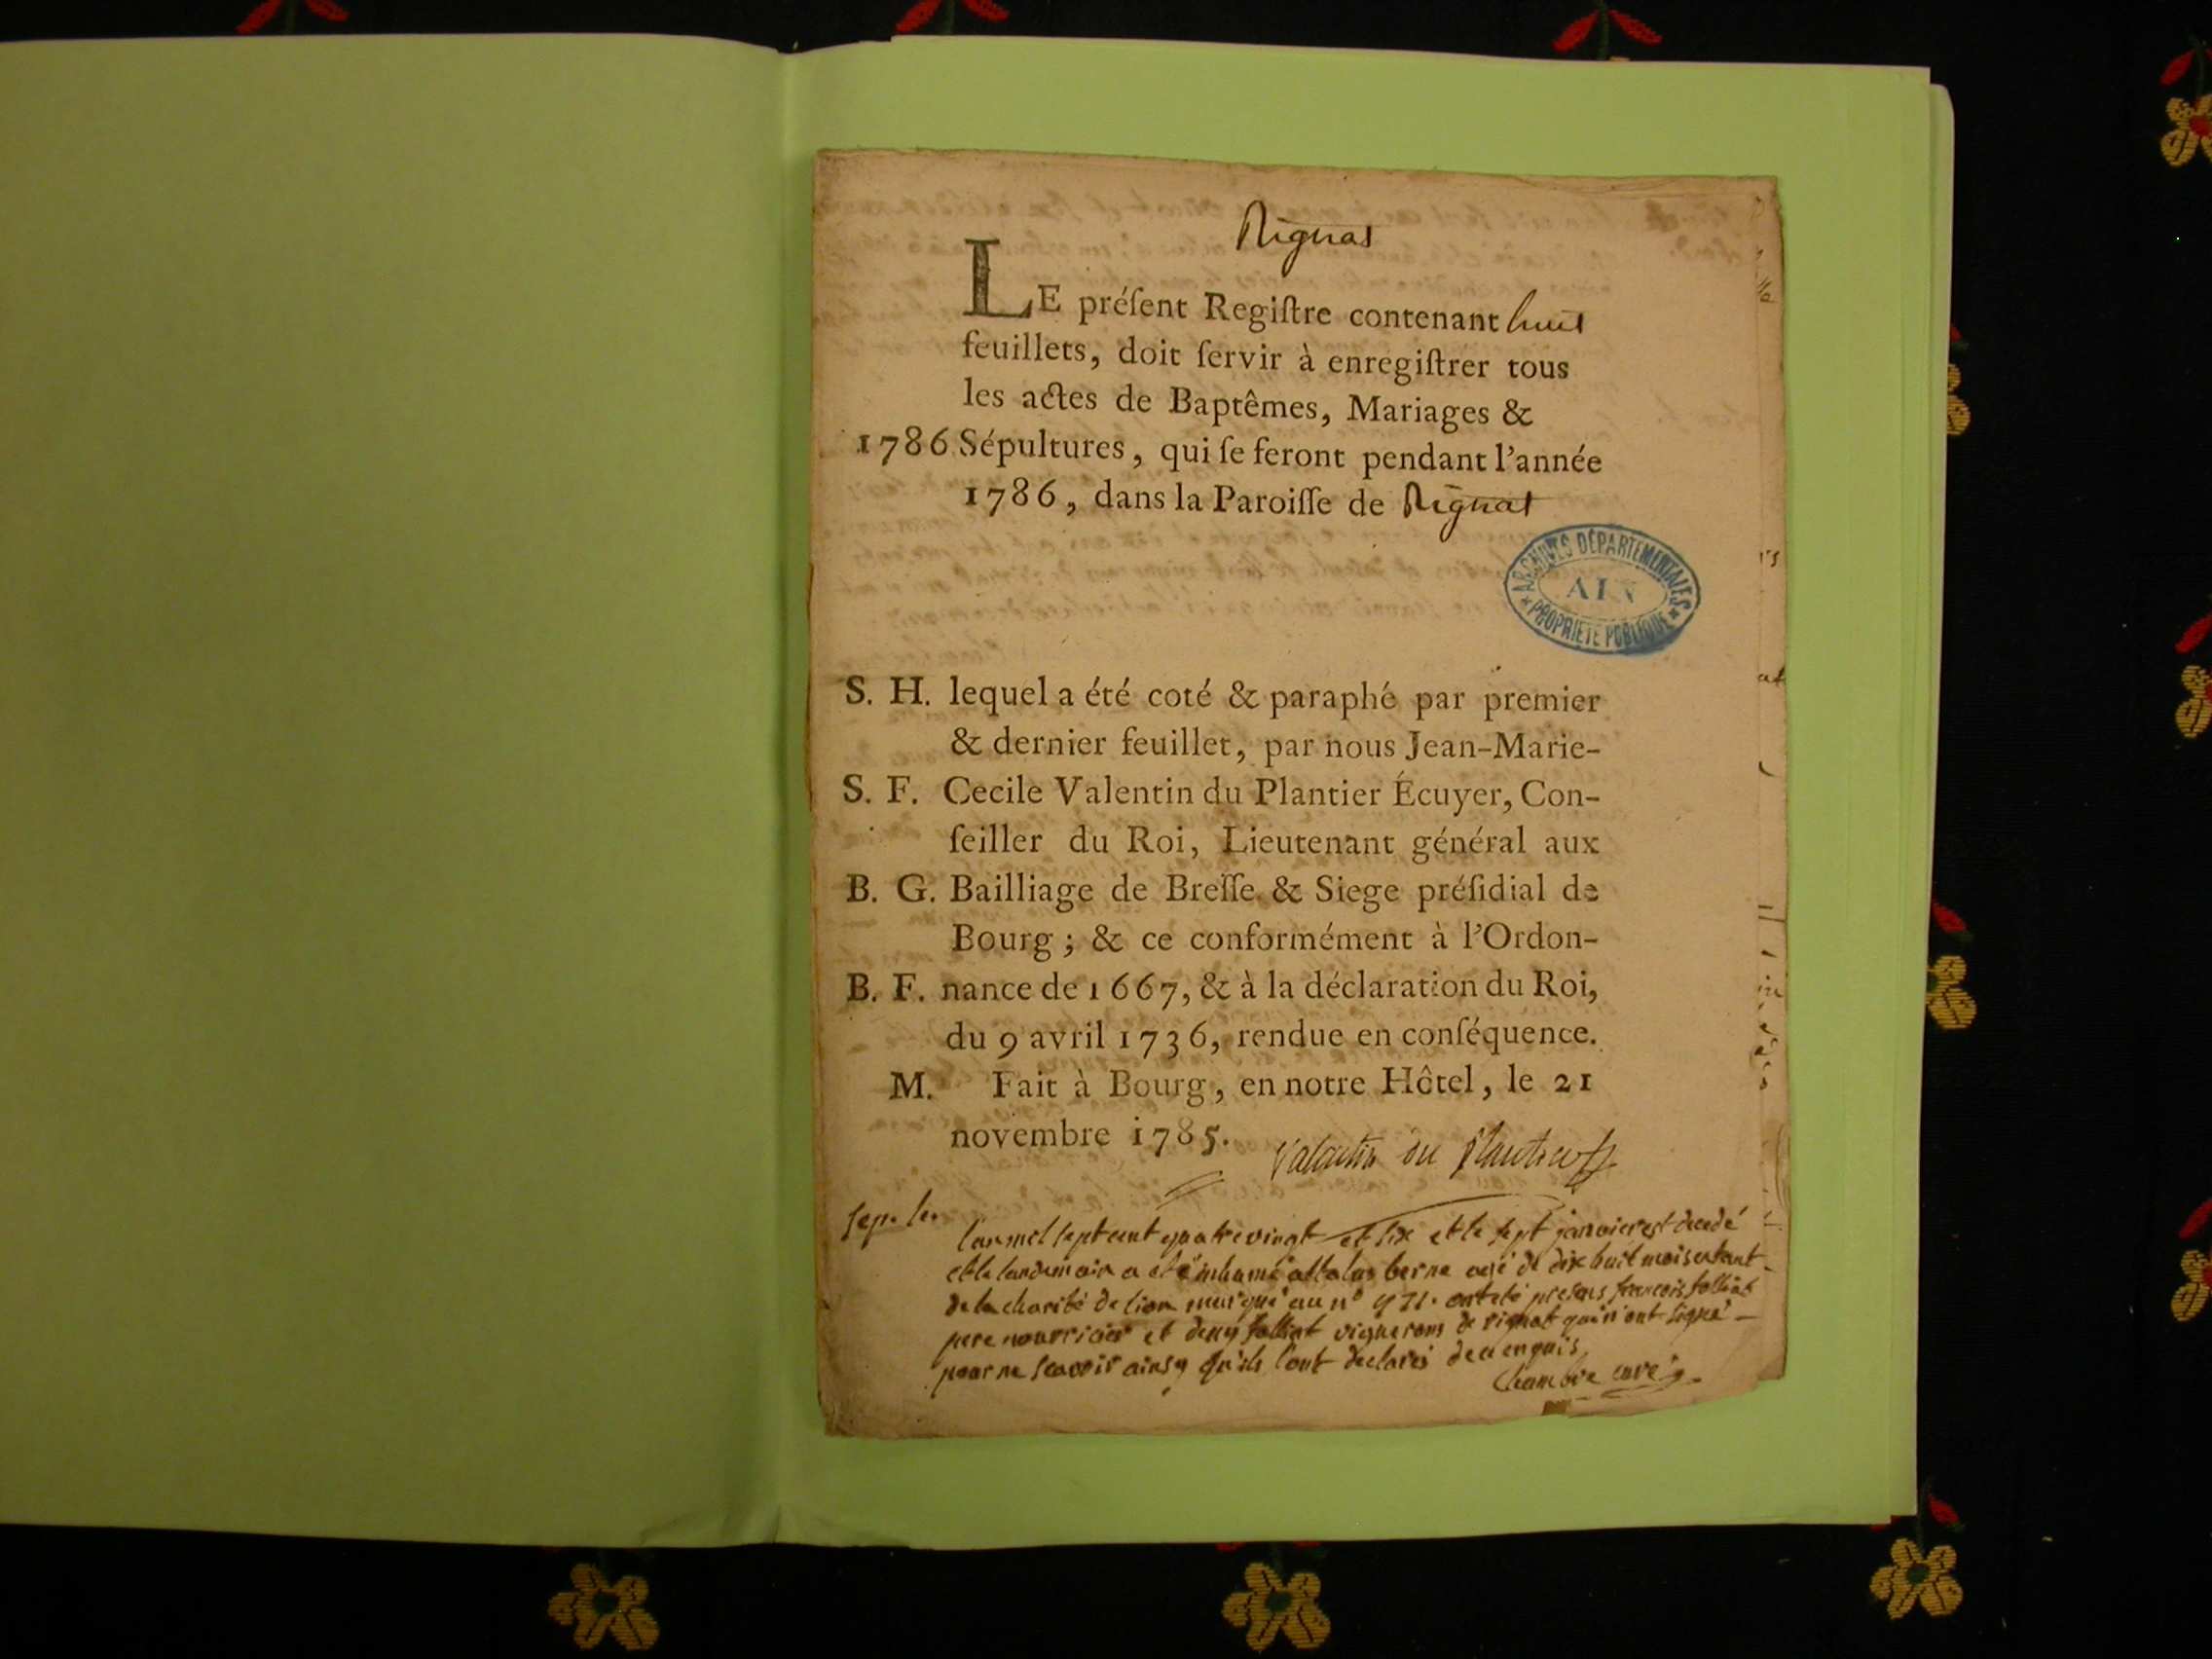 Rignat
LE préſent Regiſtre contenant huit
feuillets, doit ſervir à enregiſtrer tous
les actes de Baptêmes, Mariages &
1786 Sépultures, qui ſe feront pendant l'année
1786, dans la Paroiſſe de Rignat
ARCHIVES DÉPARTEMENTALES
AIN
PROPRIÉTÉ PUBLIQUE
S. H. lequel a été coté & paraphé par premier
& dernier feuillet, par nous Jean-Marie-
S. F. Cecile Valentin du Plantier Écuyer, Con-
ſeiller du Roi, Lieutenant général aux
B. G. Bailliage de Breſſe & Siege préſidial de
Bourg ; & ce conformément à l'Ordon-
B. F. nance de 1667, & à la déclaration du Roi,
du 9 avril 1736, rendue en conſéquence.
M. Fait à Bourg, en notre Hôtel, le 21
novembre 1785.
Valentin du Plantier
l'an mil sept cent quatre vingt et six et le sept janvier est decedé
et le landemain a eté inhumé attalus berne agé de dix huit mois enfant
de la charité de lion marqué au n° ont eté presens francois folliat
pere nourricier et deny folliat vignerons de rignat qui n'ont signé
pour ne scavoir ainsy qu'ils l'ont declarés de ce enquis
Chambre curé